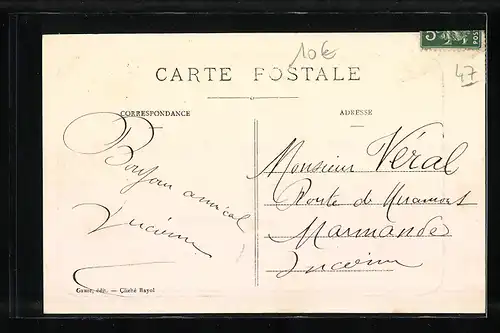 10€
5
POST
CARTE POSTALE
47
CORRESPONDANCE
ADRESSE
Bonjour amical
Lucienne
Monsieur Véral
Route de Miramont
Marmande
Gaure, édit. — Cliché Bayol